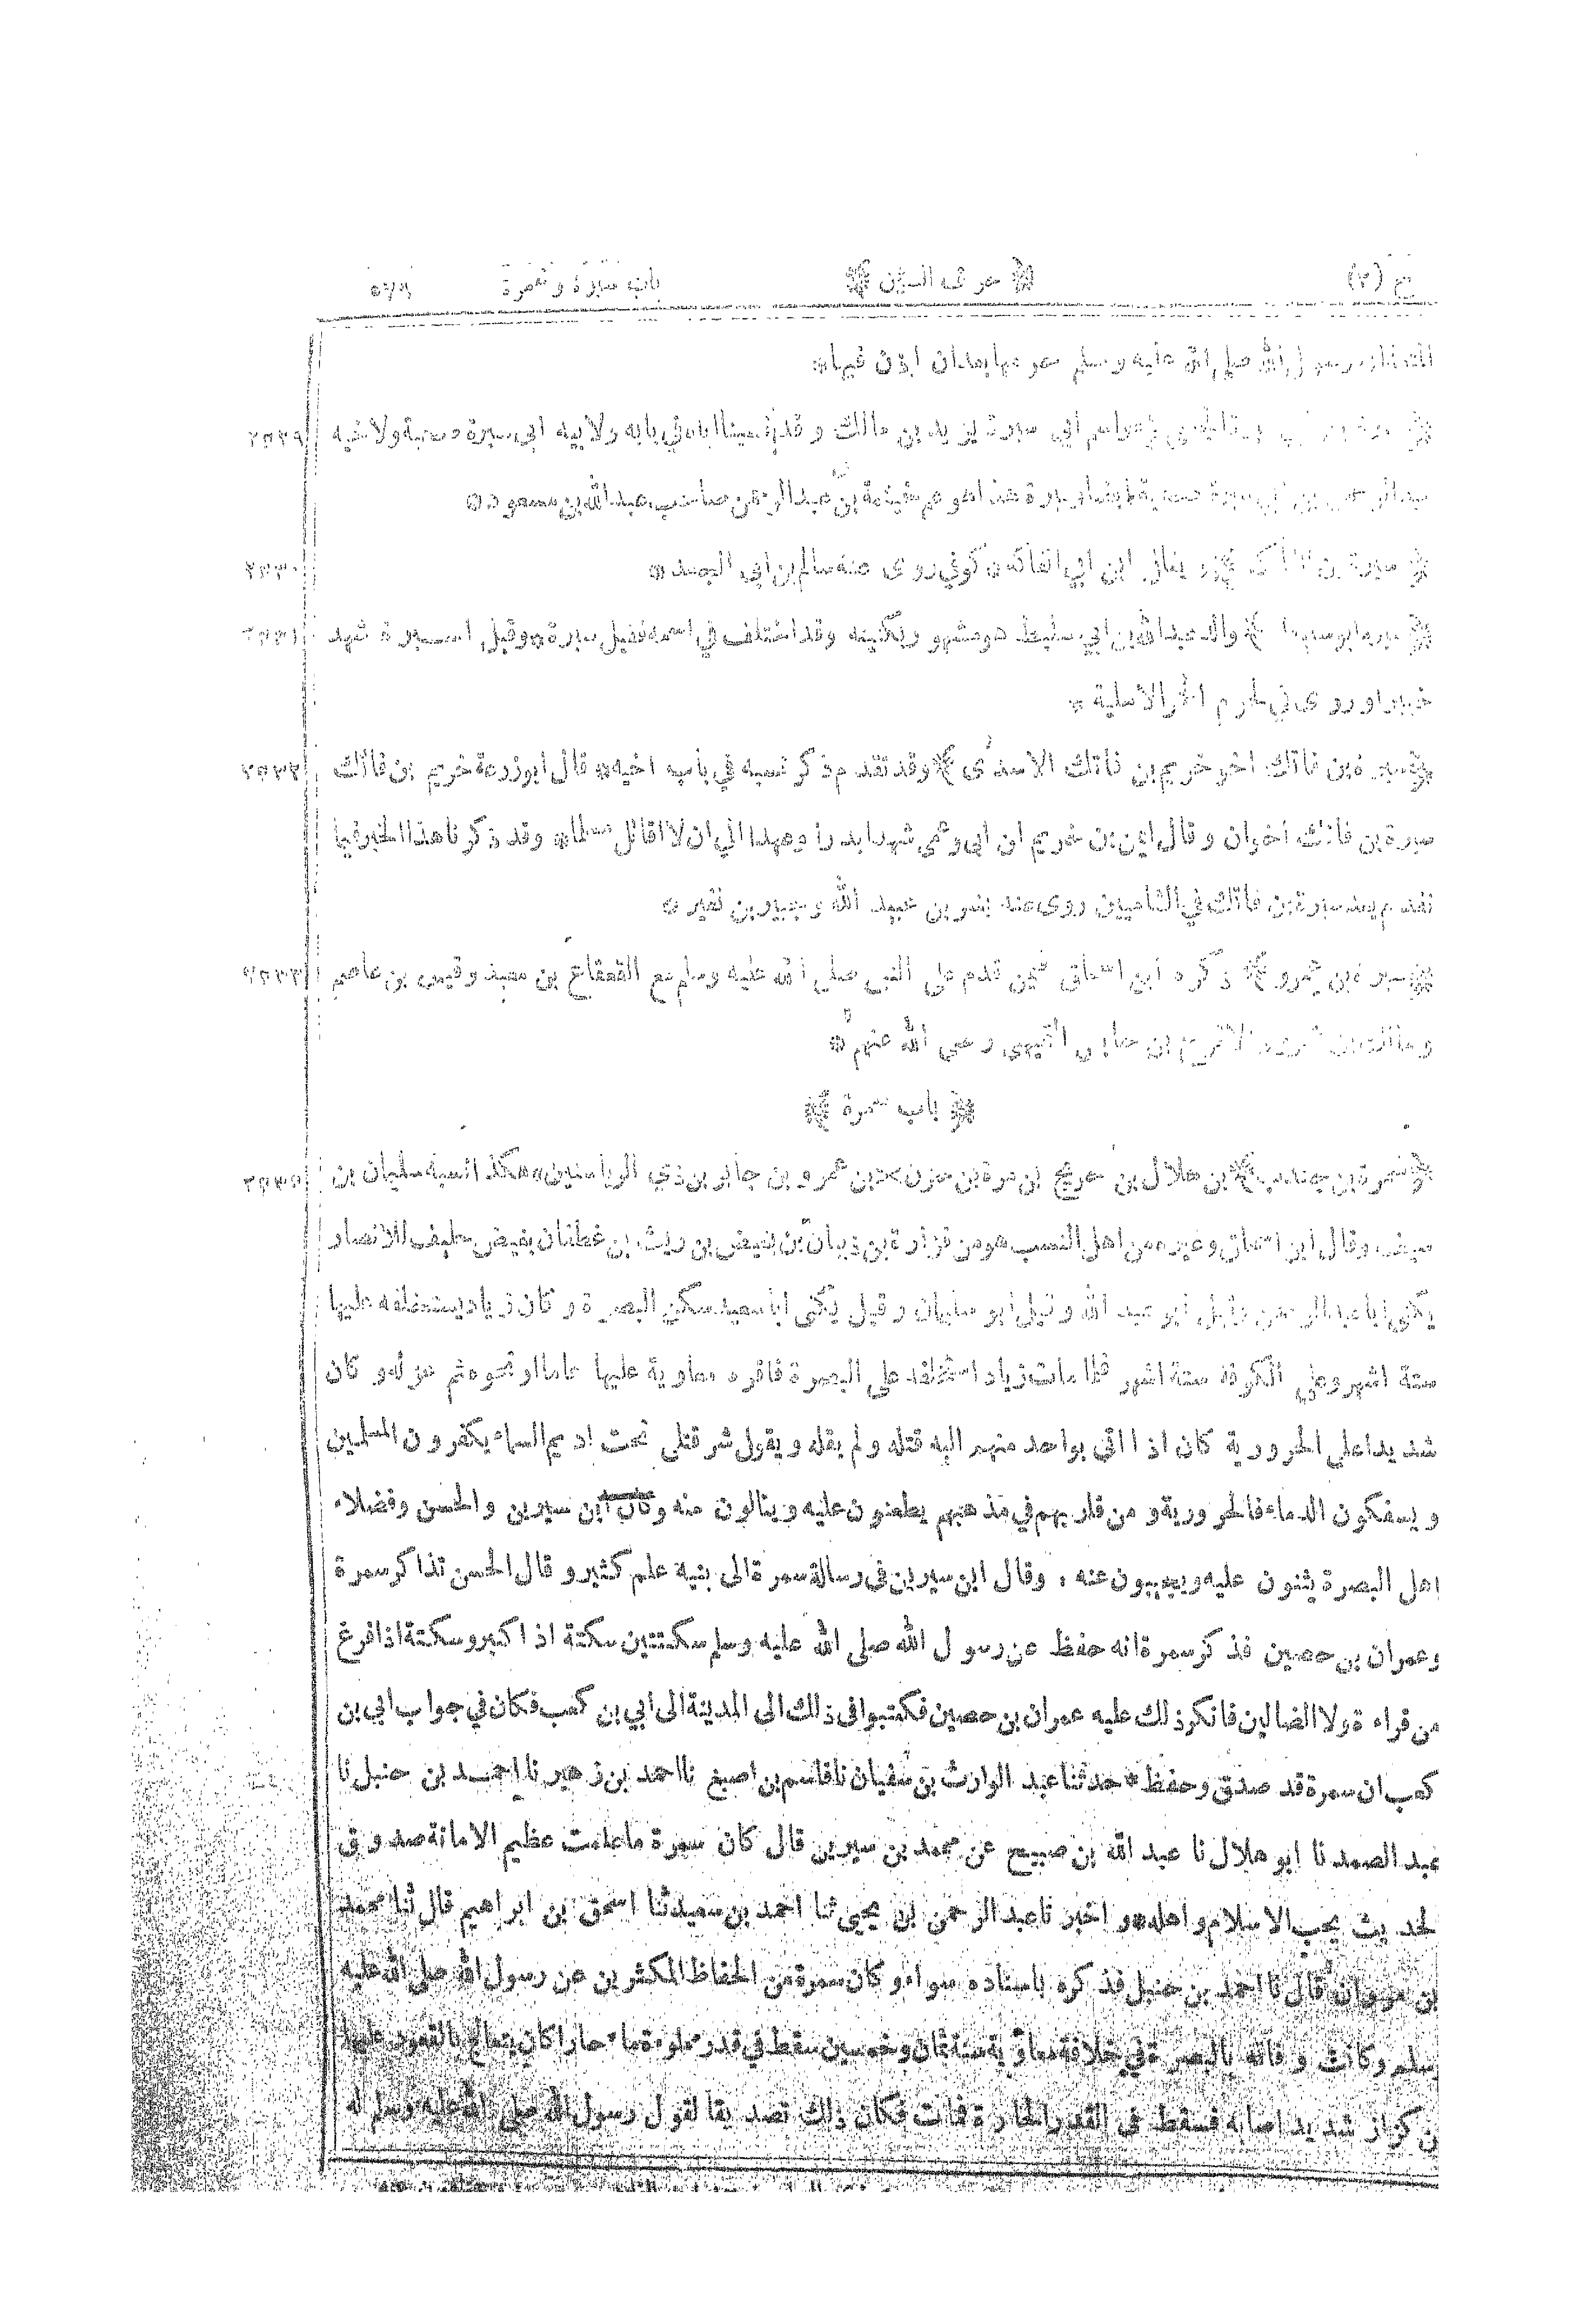 ج (٢) حرف السين باب سبرة وسمرة ٥٧٩
رسول الله صلى الله عليه وسلم حرمها بعد ان اذن فيها *
ابي سبرة يزيد بن مالك وقد نسبنا اباه في بابه ولابيه ابي سبرة صحبة ولاخيه ٢٥٢٩
عبد الرحمن بن ابي سبرة صحبة ايضا وسبرة هذا هو عم خيثمة بن عبد الرحمن صاحب عبد الله بن مسعود *
سبرة بن ويقال ابن ابي الفاكه كوفي روى عنه سالم بن ابي الجعد * ٢٥٣٠
سبرة ابو سليط والد عبد الله بن ابي سليط هو مشهور بكنيته وقد اختلف في اسمه فقيل سبرة وقيل اسبرة شهد ٢٥٣١
خيبر او روى في لحوم الحمر الاهلية *
سبرة بن فاتك اخو خريم بن فاتك الاسدى وقد تقدم ذكر نسبه في باب اخيه * قال ابو زرعة خريم بن فاتك ٢٥٣٢
سبرة بن فاتك اخوان وقال ايمن بن خريم ان ابى وعمى شهدا بدرا وعهدا الي ان لا اقاتل مسلما * وقد ذكرنا هذا الخبر فيما
تقدم يعد سبرة بن فاتك في الشاميين روى عنه بسر بن عبيد الله وجبير بن نفير *
سبرة بن عمرو ذكره ابن اسحاق فيمن قدم على النبى صلى الله عليه وسلم مع القعقاع بن معبد وقيس بن عاصم ٢٥٣٣
ومالك بن عمرو والاقرع بن حابس التميمى رضى الله عنهم *
باب سمرة
سمرة بن جندب بن هلال بن حريج بن مرة بن حزن بن عمرو بن جابر بن ذي الرياستين هكذا نسبه سليمان بن ٢٥٣٥
سيف وقال ابن اسحاق وغيره من اهل النسب هو من فزارة بن ذبيان بن بغيض بن ريث بن غطفان بغيض حليف للانصار
يكنى ابا عبد الرحمن وقيل ابو عبد الله وقيل ابو سليمان وقيل يكنى ابا سعيد سكن البصرة وكان زياد يستخلفه عليها
ستة اشهر وعلى الكوفة ستة اشهر فلما مات زياد استخلفه على البصرة فاقره معاوية عليها عاما او نحوه ثم عزله و كان
شديدا على الحرورية كان اذا اتى بواحد منهم اليه قتله ولم يقله ويقول شر قتلى تحت اديم السماء يكفرون المسلمين
ويسفكون الدماء فالحرورية ومن قاربهم في مذهبهم يطعنون عليه وينالون منه وكان ابن سيرين والحسن وفضلاء
اهل البصرة يثنون عليه ويجيبون عنه ، وقال ابن سيرين فى رسالة سمرة الى بنيه علم كثير و قال الحسن تذاكر سمرة
وعمران بن حصين فذكر سمرة انه حفظ عن رسول الله صلى الله عليه وسلم سكتتين سكتة اذا كبر وسكتة اذا فرغ
من قراءة ولا الضالين فانكر ذلك عليه عمران بن حصين فكتبوا فى ذلك الى المدينة الى ابي بن كعب فكان في جواب ابي بن
كعب ان سمرة قد صدق وحفظ * حدثنا عبد الوارث بن سفيان نا قاسم بن اصبغ نا احمد بن زهير نا احمد بن حنبل نا
عبد الصمد نا ابو هلال نا عبد الله بن صبيح عن محمد بن سيرين قال كان سمرة ما علمت عظيم الامانة صدوق
لحديث يحب الاسلام واهله * و اخبرنا عبد الرحمن بن يحيى ثنا احمد بن سعيد ثنا اسحق بن ابراهيم قال ثنا محمد
بن مروان قال نا احمد بن حنبل فذكره باسناده سواء و كان سمرة من الحفاظ المكثرين عن رسول الله صلى الله عليه
سلم وكانت وفاته بالبصرة في خلافة معاوية سنة ثمان وخمسين سقط في قدر مملوءة ماء حارا كان يتعالج بالقعود عليها
ن كزاز شديد اصابه فسقط فى القدر الحارة فمات فكان ذلك تصديقا لقول رسول الله صلى الله عليه وسلم له